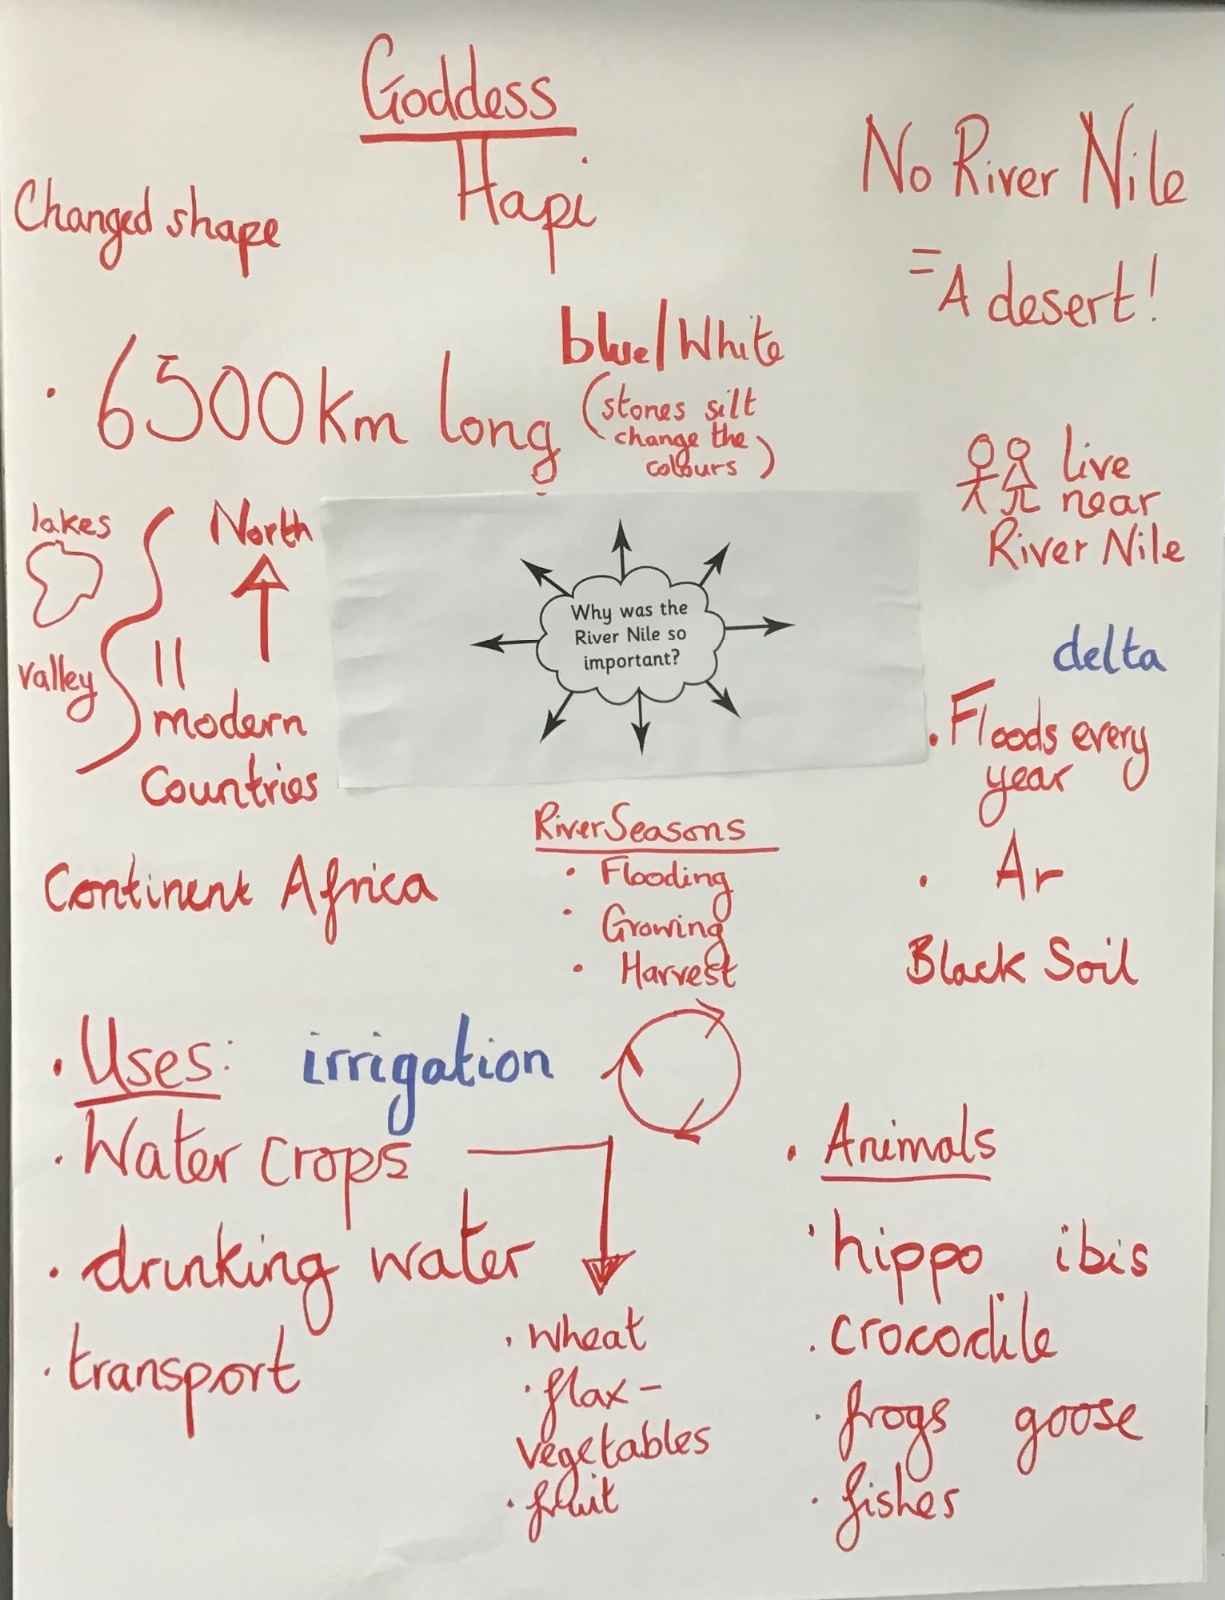 Goddess
Hapi
Changed shape
No River Nile
= A desert!
• 6500km long
blue/White
(stones silt
change the
colours)
lakes
valley
North
11
modern
Countries
Continent Africa
Why was the
River Nile so
important?
live
near
River Nile
delta
• Floods every
year
• Ar
Black Soil
River Seasons
• Flooding
• Growing
• Harvest
• Uses:
irrigation
• Water crops
• drinking water
• transport
• wheat
• flax -
vegetables
• fruit
• Animals
• hippo ibis
• crocodile
• frogs goose
• fishes